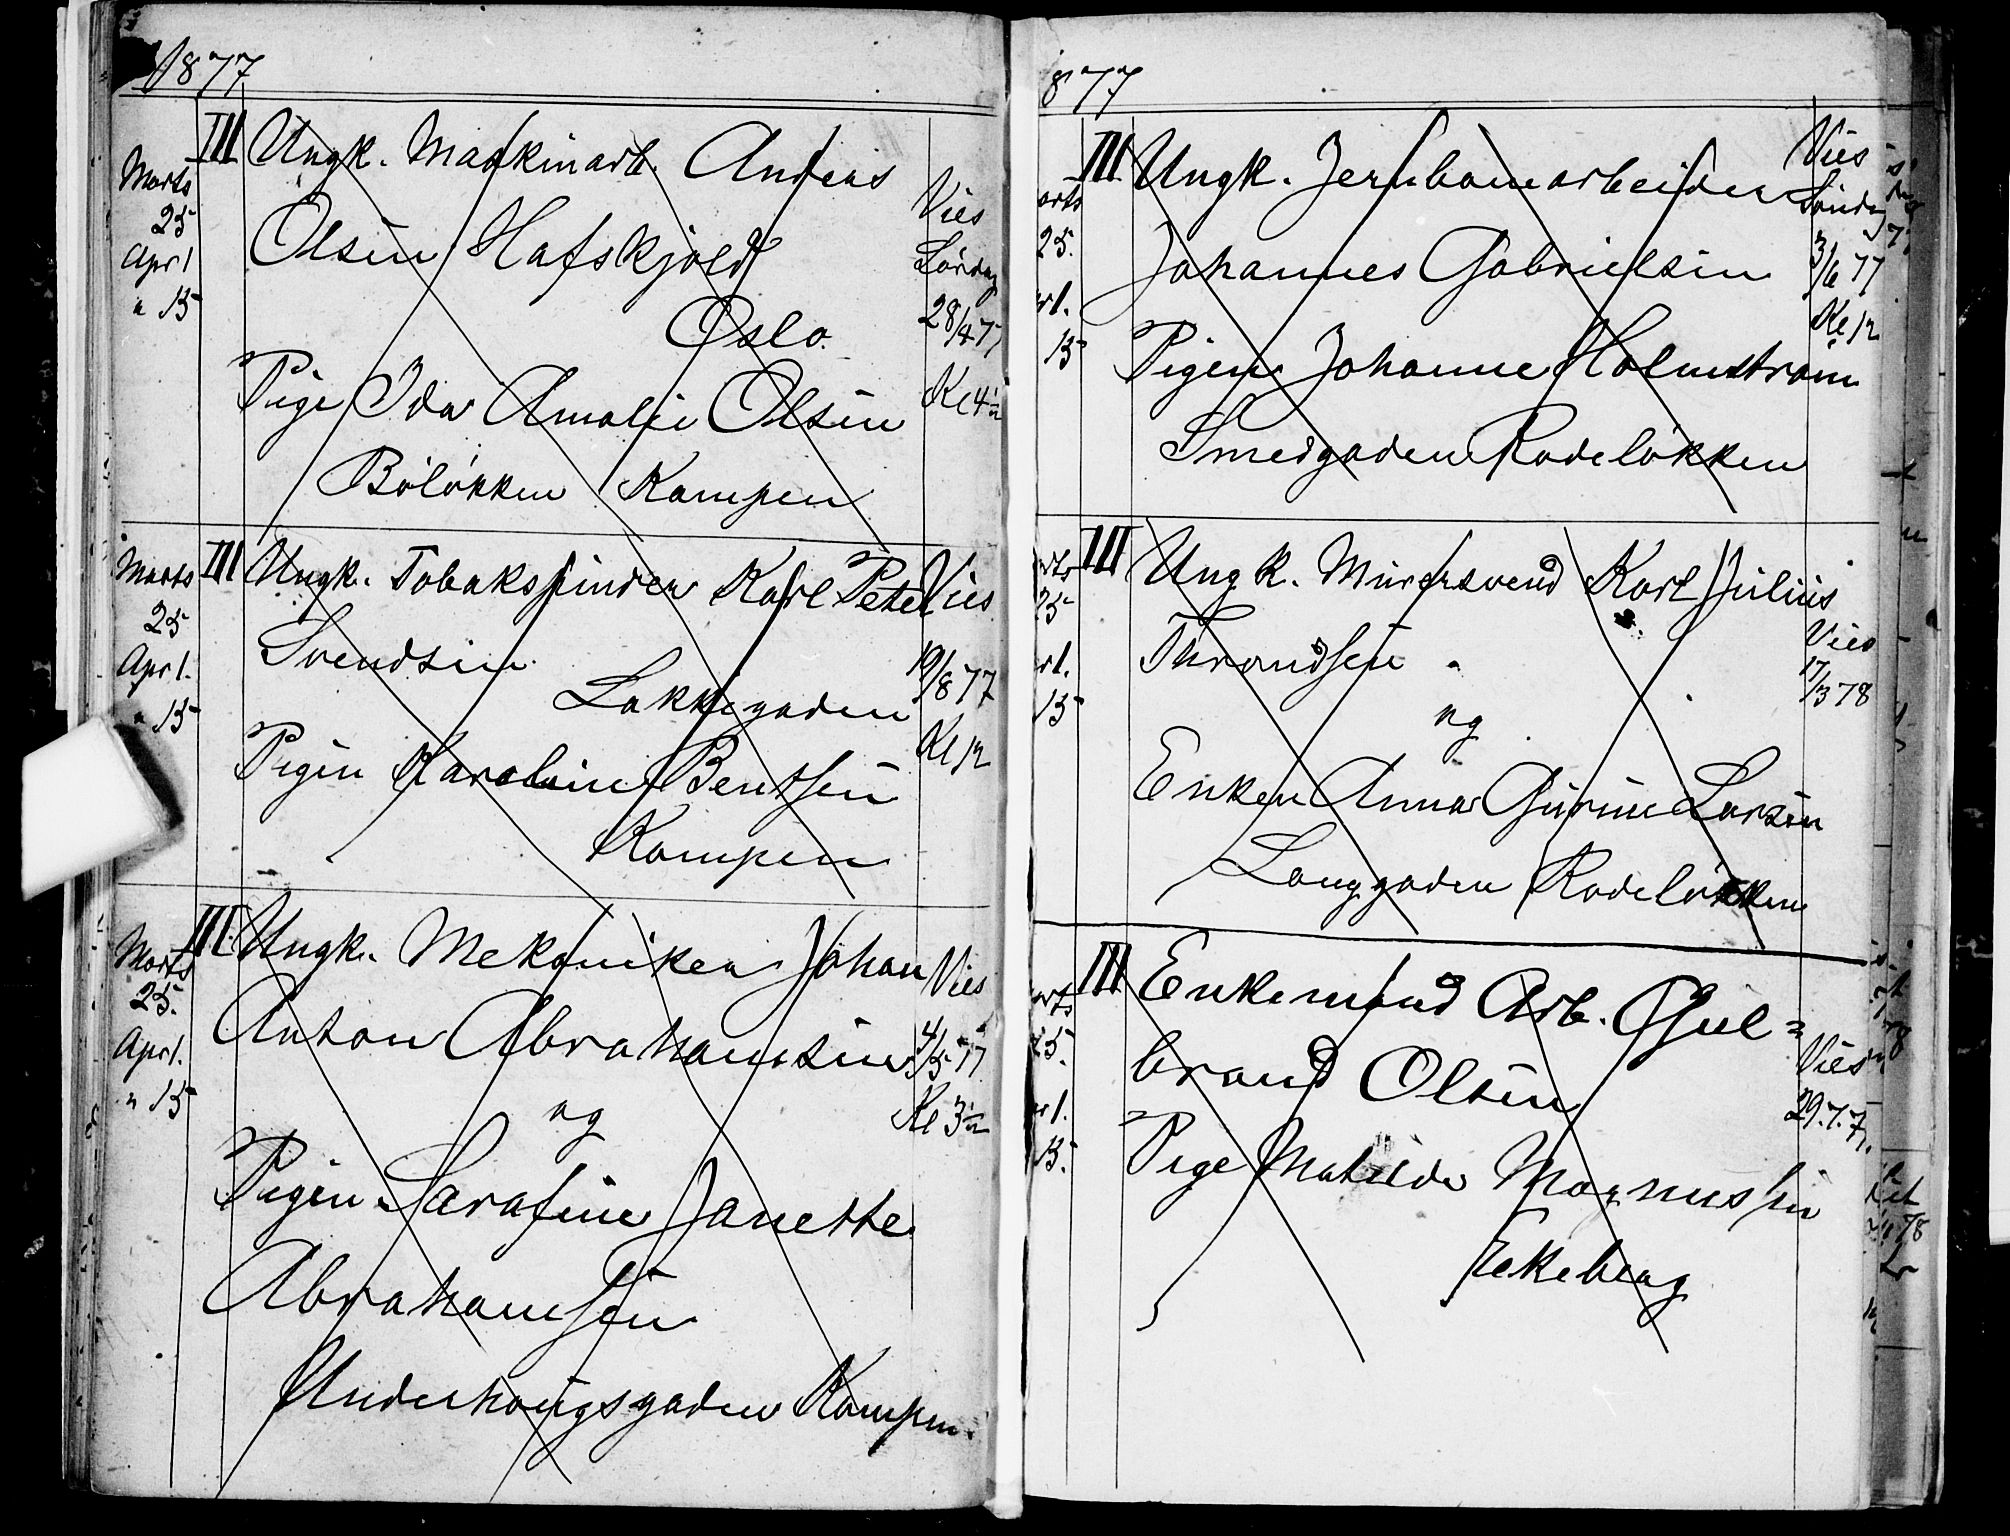 1877
Marts
25
Apr l
" 15
III Ungk. Maskinarb. Anders
Olsen Hafskjold
Oslo.
Pige Ida Amalie Olsen
Böløkken Kampen
Vies
Lørdag
28/4 77
Kl 4½
Marts
25
Apr l.
" 15
III Ungk. Tobakspinder Karl Peter
Svendsen
Lakkegaden
Pigen Karoline Bentsen
Kampen
Vies
19/8 77
Kl 12
Marts
25.
Apr l.
" 15
III. Ungk. Mekaniker Johan
Anton Abrahamsen
og
Pigen Sarafine Janette
Abrahamsen
Underhougsgaden Kampen.
Vies
4/5 77
Kl 3½
877
arts
25.
rl.
15
III Ungk. Jernbanearbeider
Johannes Gabrielsen
Pigen Johanne Holmstrøm
Smedgaden Rodeløkken
Vies
Søndag
3/6 77
Kl 12
rts
25
rl.
15
III Ungk. Murersvend Karl Julius
Throndsen
og
Enken Anna Gurine Larsen
Langgaden Rodeløkken
Vies
17/3 78
arts
25.
rl.
15.
III Enkemand Arb. Gul=
brand Olsen
Pige Matilde Magnussen
Ekeberg
Vies
29.7.77.